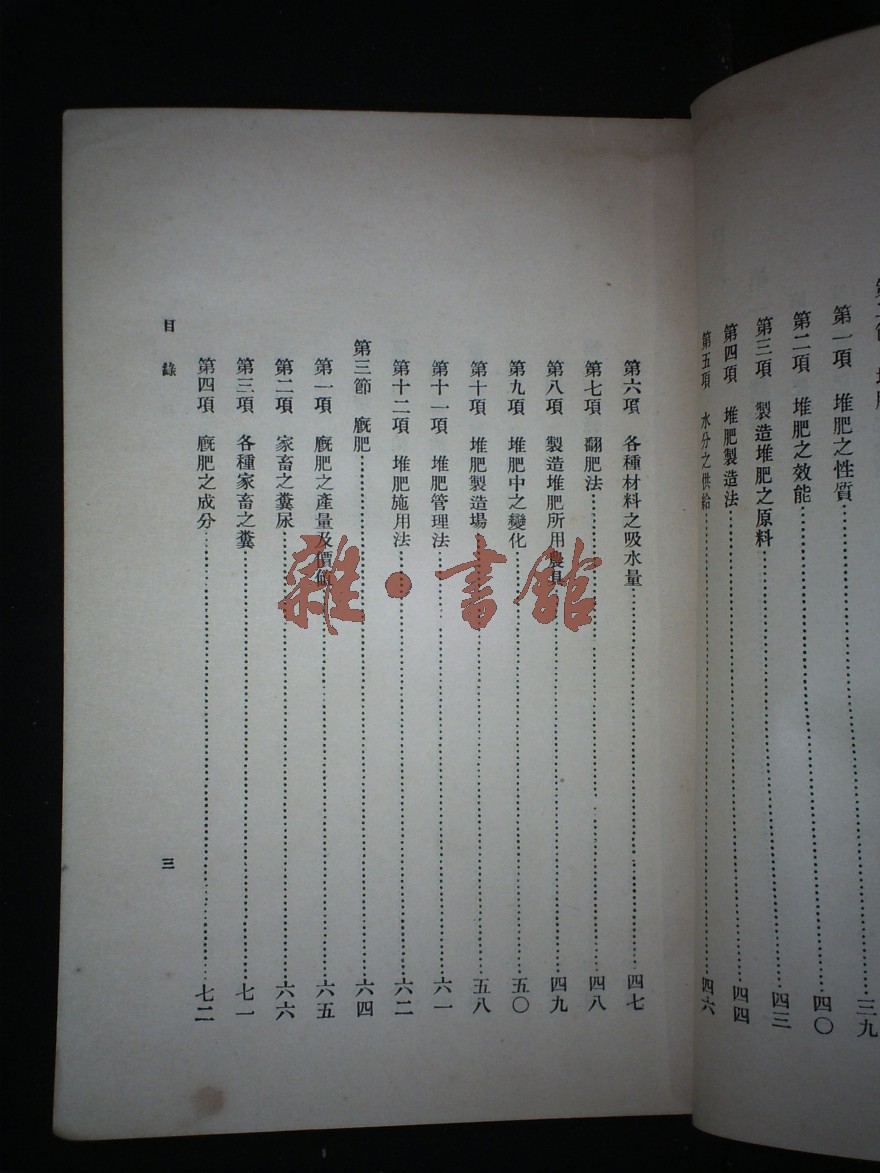 第一項　堆肥之性質……三九
第二項　堆肥之效能……四〇
第三項　製造堆肥之原料……四三
第四項　堆肥製造法……四四
第五項　水分之供給……四六
第六項　各種材料之吸水量……四七
第七項　翻肥法……四八
第八項　製造堆肥所用農具……四九
第九項　堆肥中之變化……五〇
第十項　堆肥製造場……五八
第十一項　堆肥管理法……六一
第十二項　堆肥施用法……六二
第三節　廐肥……六四
第一項　廐肥之產量及價值……六五
第二項　家畜之糞尿……六六
第三項　各種家畜之糞……七一
第四項　廐肥之成分……七二
目錄
三
雜·書館